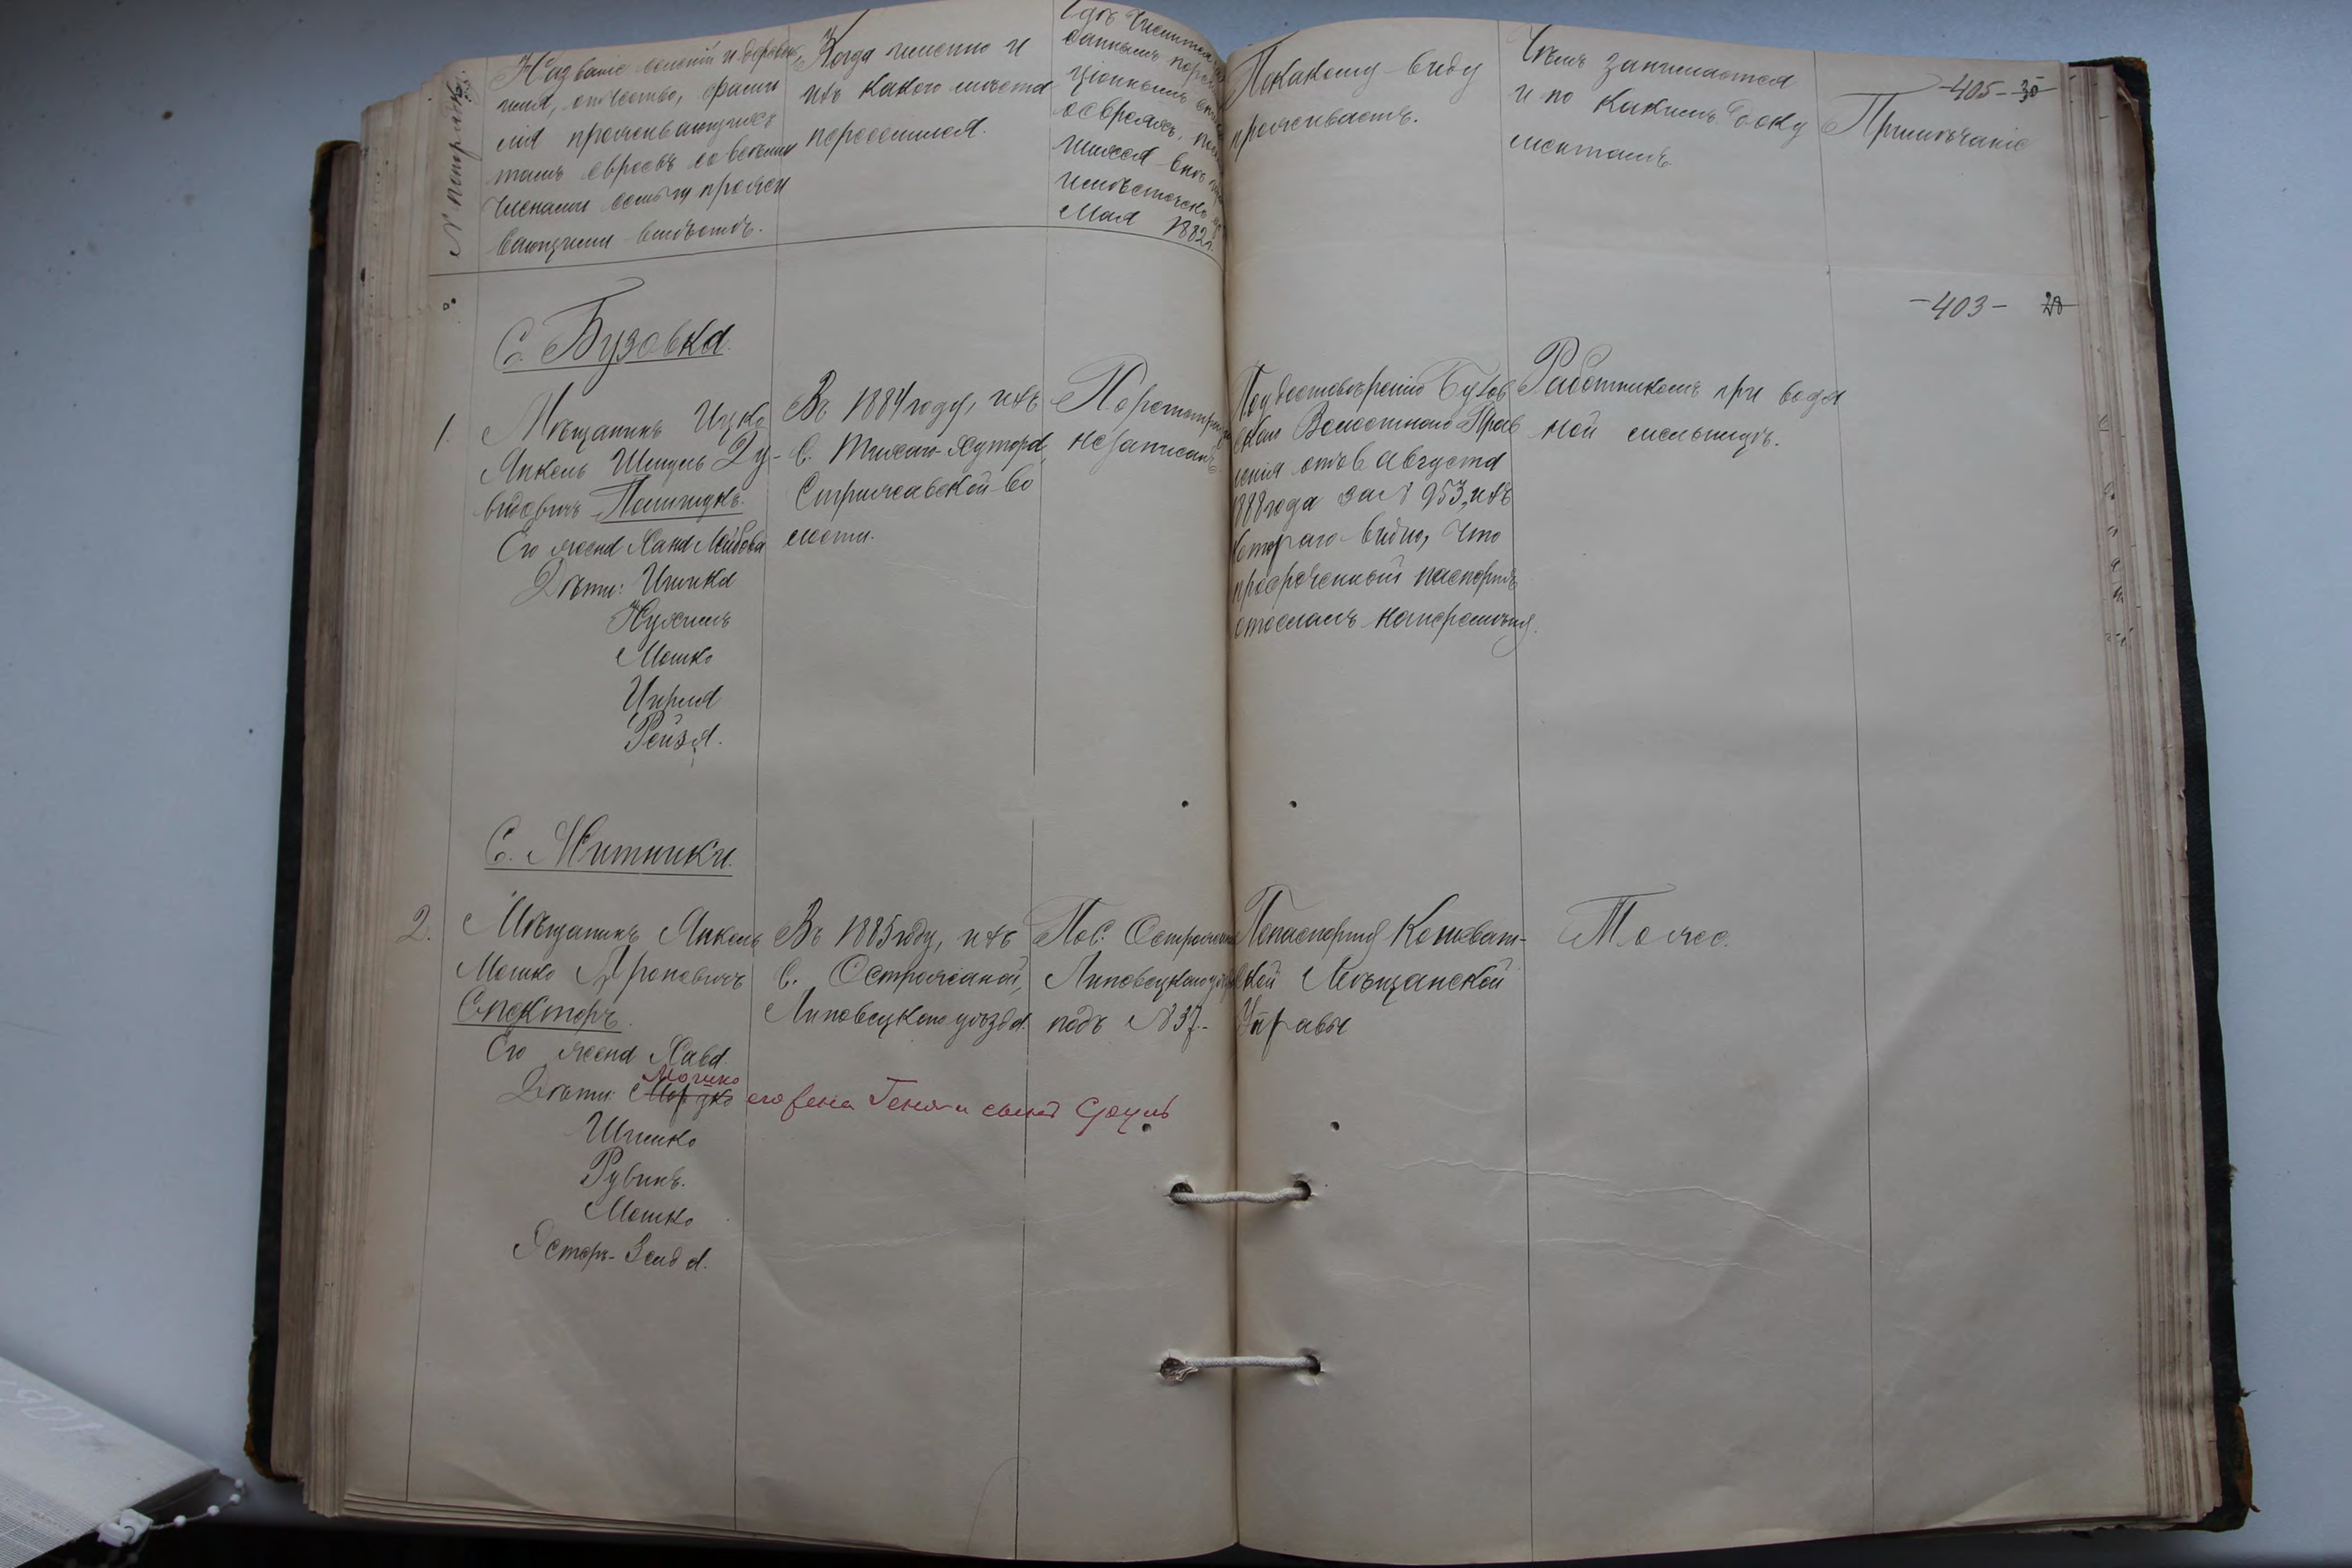 № по порядку.
Названіе селеній и деревень,
имя, отчество, фами
лія проживающихъ
тамъ евреевъ со всѣми
членами семьи прожи
вающими вмѣстѣ.
Когда именно и
изъ какого мѣста
переселился.
Гдѣ числится
даннымъ
ціоннымъ
о евреяхъ,
Мая 1882 г.
По какому виду
проживаетъ.
Чѣмъ занимается
и по какимъ доку
ментамъ.
-405- 30
Примѣчаніе
-403- 28
С. Бузовка.
1. Мѣщанинъ Ицко
Янкель Шмуль Ду-
видовичъ Полищукъ.
Его жена Хана Лейбова
Дѣти: Шлика
Нухимъ
Мошко
Цирля
Рейзя.
Въ 1884 году, изъ
С. Тихаго Хутора,
Стрижавской во
лости.
По регистраціи
не записанъ.
По удостовѣренію Бузов
скаго Волостного Прав
ленія отъ 6 Августа
1888 года за № 953, изъ
котораго видно, что
просроченный паспортъ
отосланъ на перемѣну.
Работникомъ при водя
ной мельницѣ.
С. Житники.
2. Мѣщанинъ Янкель
Мошко Ароновичъ
Спекторъ.
Его жена Хава
Мошко
Дѣти: Мордко его жена Геня и сынъ Сруль
Шимко
Рувинъ.
Мошко
Эстеръ-Зельда.
Въ 1885 году, изъ
С. Остро­жаной,
Липовецкаго уѣзда.
По С. Острожаной
Липовецкаго уѣзда
подъ № 37.-
По паспорту Коневат-
ской Мѣщанской
Управы
Тоже.